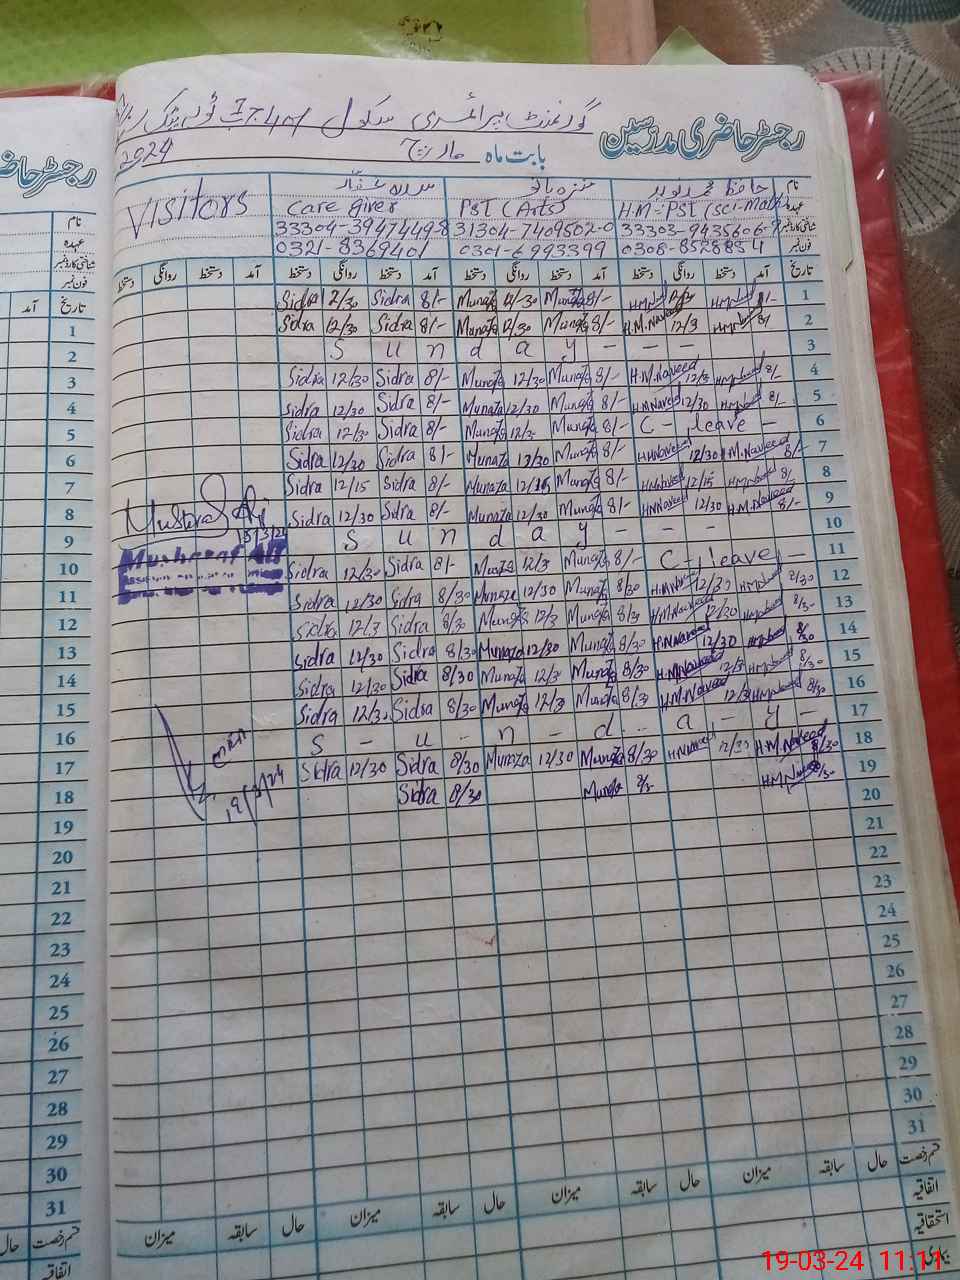 رجسٹر حاضری مدرسین
گورنمنٹ پرائمری سکول
بابت ماہ مارچ 2024
نام حافظ محمد نوید منزہ بانو سدرہ
عہدہ H.M= PST (sci-Math) PST (Arts) Care giver VISITORS
شناختی کارڈ نمبر 33303-9435606-9 31304-7409502-0 33304-3947449-8
فون نمبر 0308-8528854 0301-6993399 0321-8369401
تاریخ آمد دستخط روانگی دستخط آمد دستخط روانگی دستخط آمد دستخط روانگی دستخط آمد دستخط روانگی دستخط
Sidra 12/30 Sidra 8/- Munaza 12/30 Munaza 8/- 1
Sidra 12/30 Sidra 8/- Munaza 12/30 Munaza 8/- H.M.Naveed 12/3 8/- 2
S u n d a y - - - 3
Sidra 12/30 Sidra 8/- Munaza 12/30 Munaza 8/- H.M.Naveed 12/3 8/- 4
Sidra 12/30 Sidra 8/- Munaza 12/30 Munaza 8/- H.M.Naveed 12/30 8/- 5
Sidra 12/3 Sidra 8/- Munaza 12/3 Munaza 8/- C - leave - 6
Sidra 12/30 Sidra 8/- Munaza 12/30 Munaza 8/- H.M.Naveed 12/30 H.M.Naveed 8/- 7
Sidra 12/15 Sidra 8/- Munaza 12/15 Munaza 8/- H.M.Naveed 12/15 8/- 8
Sidra 12/30 Sidra 8/- Munaza 12/30 Munaza 8/- H.M.Naveed 12/30 H.M.Naveed 8/- 9
S u n d a y - - - 10
Sidra 12/30 Sidra 8/- Munaza 12/3 Munaza 8/- C - leave - 11
Sidra 12/30 Sidra 8/30 Munaza 12/30 Munaza 8/30 H.M.Naveed 12/30 8/30 12
Sidra 12/3 Sidra 8/30 Munaza 12/3 Munaza 8/3 H.M.Naveed 12/30 8/30 13
Sidra 12/30 Sidra 8/30 Munaza 12/30 Munaza 8/30 H.M.Naveed 12/30 8/30 14
Sidra 12/30 Sidra 8/30 Munaza 12/30 Munaza 8/30 H.M.Naveed 12/3 8/30 15
Sidra 12/30 Sidra 8/30 Munaza 12/3 Munaza 8/3 H.M.Naveed 12/3 8/30 16
S - u - n - d - a - y - 17
Sidra 12/30 Sidra 8/30 Munaza 12/30 Munaza 8/30 H.M.Naveed 12/30 H.M.Naveed 8/30 18
Sidra 8/30 Munaza 8/3 H.M.Naveed 8/30 19
20
21
22
23
24
25
26
27
28
29
30
31
قسم رخصت حال سابقہ میزان حال سابقہ میزان حال سابقہ میزان حال سابقہ میزان
اتفاقیہ
استحقاقیہ
بیماری
Musharaf Ali
19/3/24
رجسٹر حاضری
نام
عہدہ
شناختی کارڈ نمبر
فون نمبر
تاریخ آمد
1
2
3
4
5
6
7
8
9
10
11
12
13
14
15
16
17
18
19
20
21
22
23
24
25
26
27
28
29
30
31
قسم رخصت حال
اتفاقیہ
19-03-24 11:11